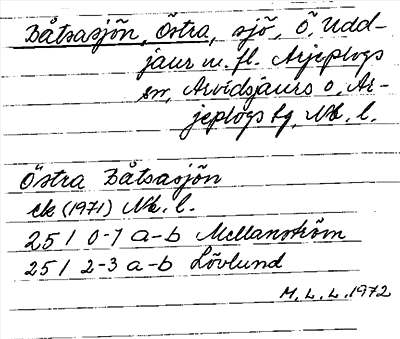 Båtsasjön, Östra, sjö, Ö. Udd-
jaur m. fl. Arjeplogs
sn, Arvidsjaurs o. Ar-
jeplogs tg, Nb. l.
Östra Båtsasjön
ek (1971) Nb. l.
25 I 0-1 a-b Mellanström
25 I 2-3 a-b Lövlund
M. L. L. 1972